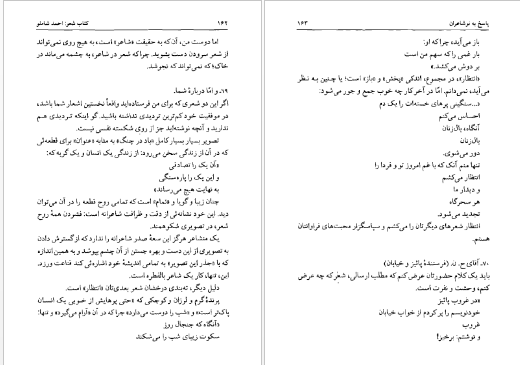 پاسخ به نوشاعران
۱۶۳
باز می‌آید، چرا که او:
باری را که سهم من است
بر دوش می‌کشد.»
«انتظار»، در مجموع، اندکی «پخش» و «باز» است؛ یا چنین به نظر
می‌آید، نمی‌دانم. امّا در آخر کار چه خوب جمع و جور می‌شود:
«...سنگینی پرهای خسته‌ات را یک دم
احساس می‌کنم
آنگاه، بال‌زنان
بال‌زنان
دور می‌شوی.
تنها منم آنک که با غم امروز تو و فردا را
انتظار می‌کشم
و دیدار ما
هر سحرگاه
تجدید می‌شود.
انتظار شعرهای دیگرتان را می‌کشم و سپاسگزار محبت‌های فراوانتان
هستم.
۷۰. آقای ح. ن. (فرستندهٔ پائیز و خیابان)
باید یک کلام حضورتان عرض کنم که مطلب ارسالی، شعر که چه عرض
کنم، وحشت و نفرت است.
«در غروب پائیز
خودنویسم را پر کردم از خواب خیابان
غروب
و نوشتم: برخیز!
۱۶۲
کتاب شعر: احمد شاملو
اما دوست من، آن که به حقیقت «شاعر» است، به هیچ روی نمی‌تواند
از شعر سرودن دست بشوید. چرا که شعر در شاعر، به چشمه می‌ماند در
خاک: که نمی‌تواند که نجوشد.
۱۹. و امّا دربارهٔ شما.
اگر این دو شعری که برای من فرستاده‌اید واقعاً نخستین اشعار شما باشد،
در موفقیت خود کم‌ترین تردیدی نداشته باشید. گو اینکه تردیدی هم
ندارید و آنچه نوشته‌اید جز از روی شکسته نفسی نیست.
تصویر بسیار بسیار کامل «باد در چنگ» به مثابه «عنوان» برای قطعه‌ئی
که در آن از زندگی سخن می‌رود: از زندگی یک انسان و یک گربه که:
«آن یک را تصادفی
و این یک را پاره‌سنگی
به نهایت هیچ می‌رساند.»
چنان زیبا و گویا و «تمام» است که تمامی روح قطعه را در آن می‌توان
دید. این خود نشانه‌ئی از دقت و ظرافت شاعرانه است: فشردن همهٔ روح
شعر، در تصویری شکوهمند.
یک متشاعر هرگز این سعهٔ صدر شاعرانه را ندارد که از گسترش دادن
به تصویری از این دست و بهره جستن از آن چشم بپوشد و به همین اندازه
که با «جذر این تصویر» به تمامی اندیشهٔ خود اشاره‌ئی کند قناعت ورزد.
این، تنها، کار یک شاعر بالفطره است.
دلیل دیگر، ته‌بندی درخشان شعر بعدی‌تان «انتظار» است.
پرندهٔ گرم و لرزان و کوچکی که «حتی پرهایش از خوبی یک انسان
پاک‌تر است» و «شب را دوست می‌دارد» چرا که در آن «آرام می‌گیرد» و تنها:
«آنگاه که جنجال روز
سکوت زیبای شب را می‌شکند